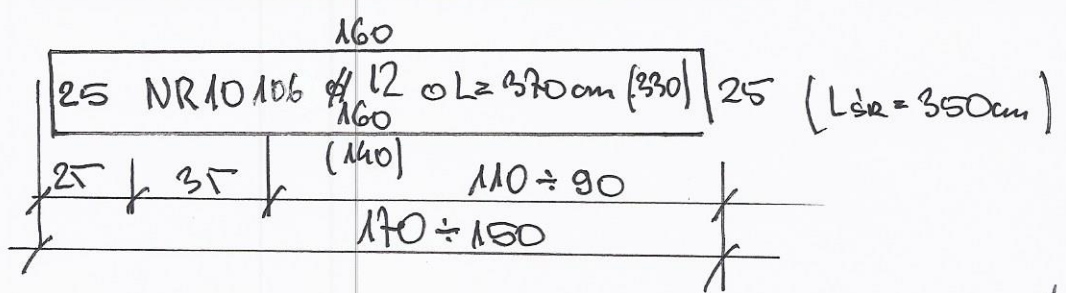 160
25 NR10 106 # 12 o L= 370cm (330) 25 (Lśr = 350cm)
160
(140)
25 35 110 ÷ 90
170 ÷ 150